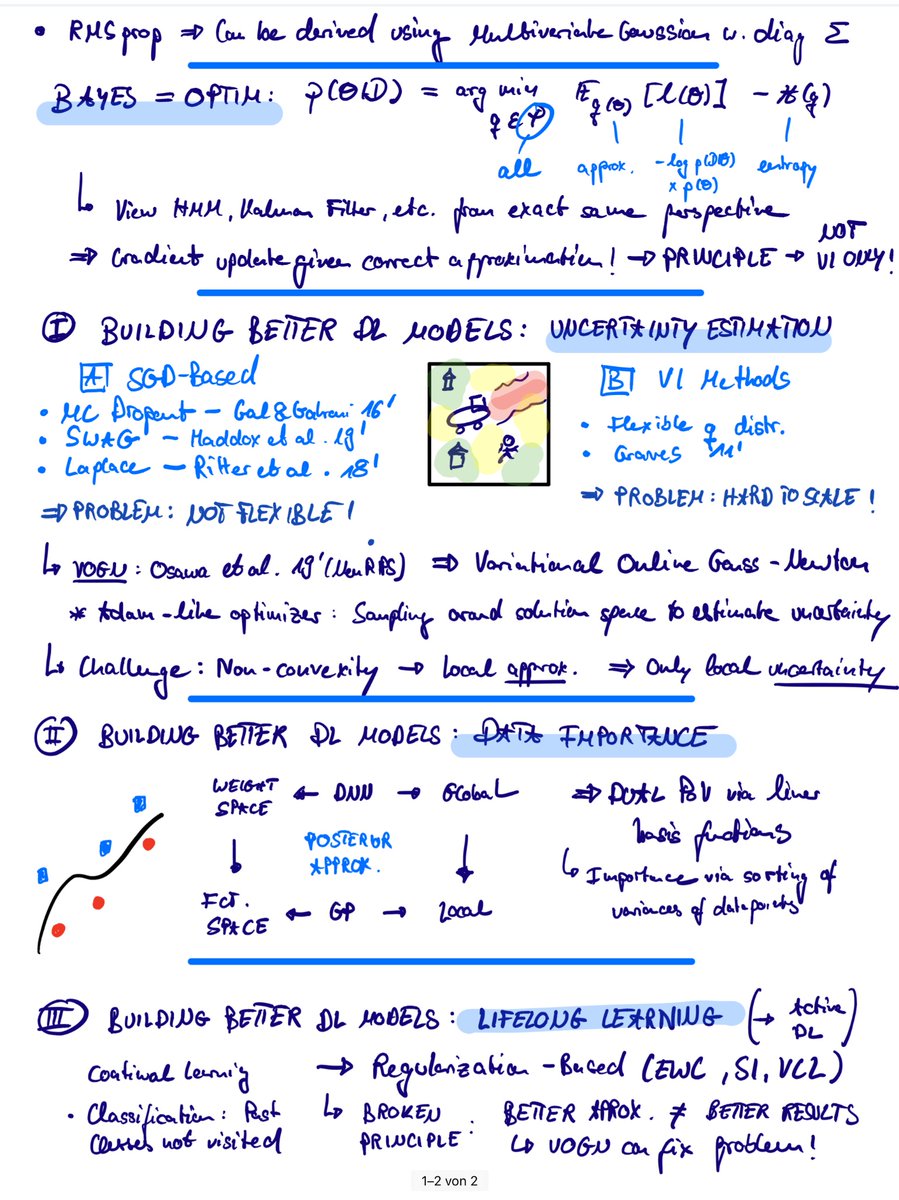 • RMSprop ⇒ Can be derived using Multivariate Gaussian w. diag Σ
BAYES = OPTIM: p(θ|D) = arg min q ∈ P E q(θ) [l(θ)] - H(q)
all approx. -log p(D|θ) x p(θ) entropy
↳ View HMM, Kalman Filter, etc. from exact same perspective
⇒ Gradient update given correct approximation! → PRINCIPLE → NOT VI ONLY!
I BUILDING BETTER DL MODELS: UNCERTAINTY ESTIMATION
A SGD-Based
• MC Dropout – Gal & Gahrani 16'
• SWAG – Maddox et al. 19'
• Laplace – Ritter et al. 18'
⇒ PROBLEM: NOT FLEXIBLE!
B VI Methods
• Flexible q distr.
• Graves 11'
⇒ PROBLEM: HARD TO SCALE!
↳ VOGN: Osawa et al. 19' (NeurIPS) ⇒ Variational Online Gauss-Newton
* Adam-like optimizer: Sampling arond solution space to estimate uncertainty
↳ Challenge: Non-convexity → Local approx. ⇒ Only local uncertainty
II BUILDING BETTER DL MODELS: DATA IMPORTANCE
WEIGHT SPACE ← DNN → Global
↓ POSTERIOR APPROX. ↓
FCT. SPACE ← GP → Local
⇒ DUAL PoV via liner
basis functions
↳ Importance via sorting of
variances of datapoints
III BUILDING BETTER DL MODELS: LIFELONG LEARNING (→ Active DL)
Continual Learning → Regularization-Based (EWC, SI, VCL)
• Classification: Past
Classes not visited
↳ BROKEN PRINCIPLE: BETTER APPROX. ≠ BETTER RESULTS
↳ VOGN can fix problem!
1–2 von 2